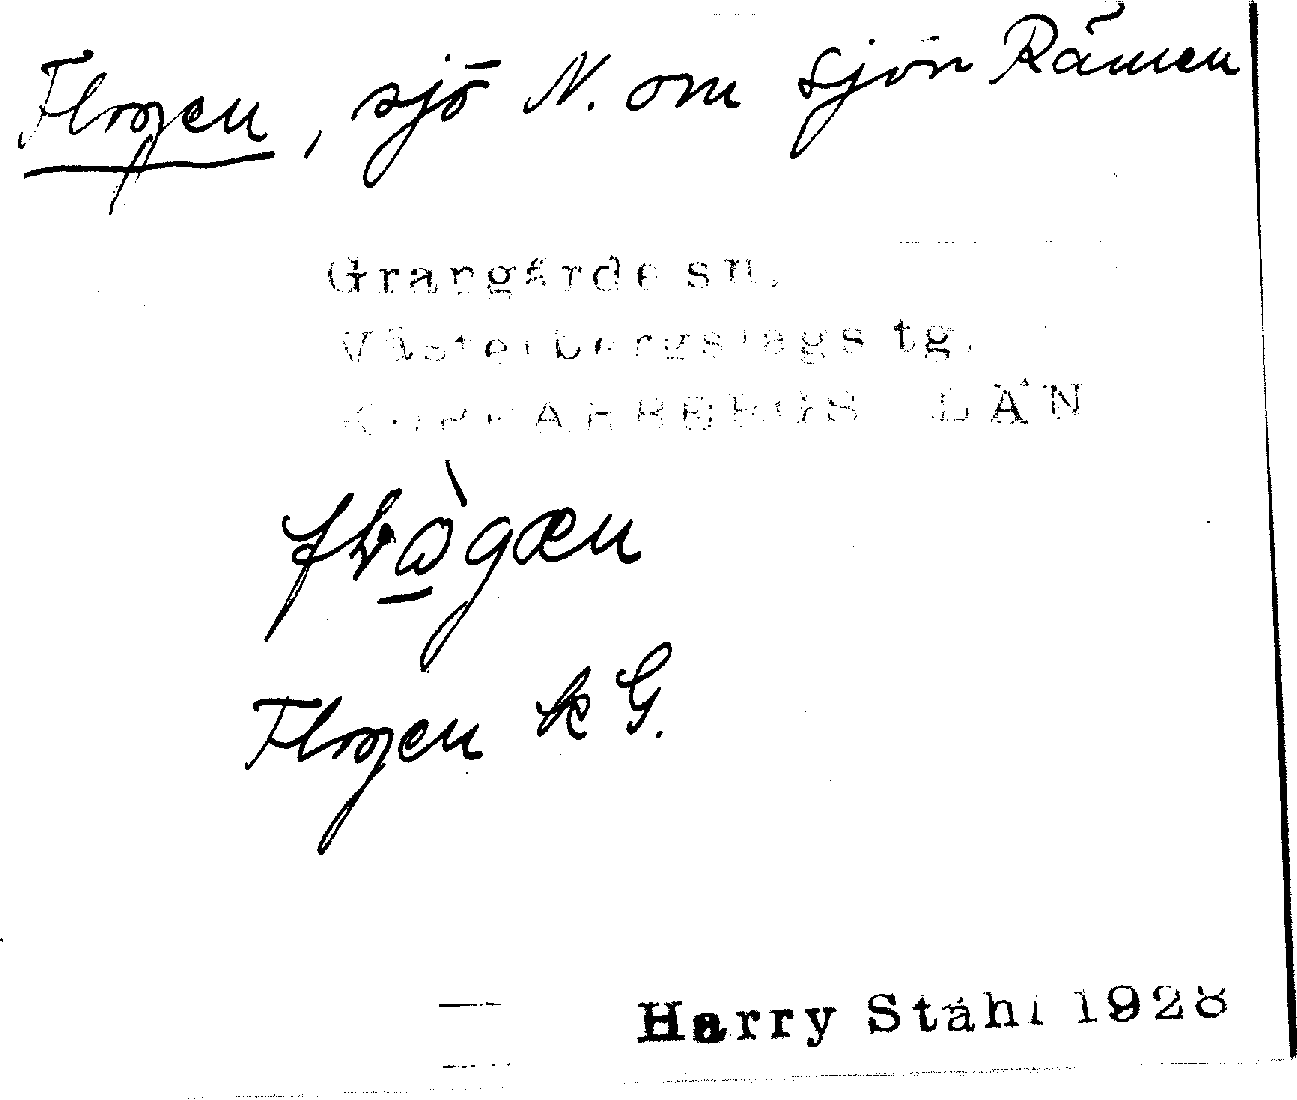 Flogen, sjö N. om sjön Rämen
Grangärde sn.
Västerbergslags tg.
KOPPARBERGS LÄN
Flogen k G.
Harry Ståhl 1928